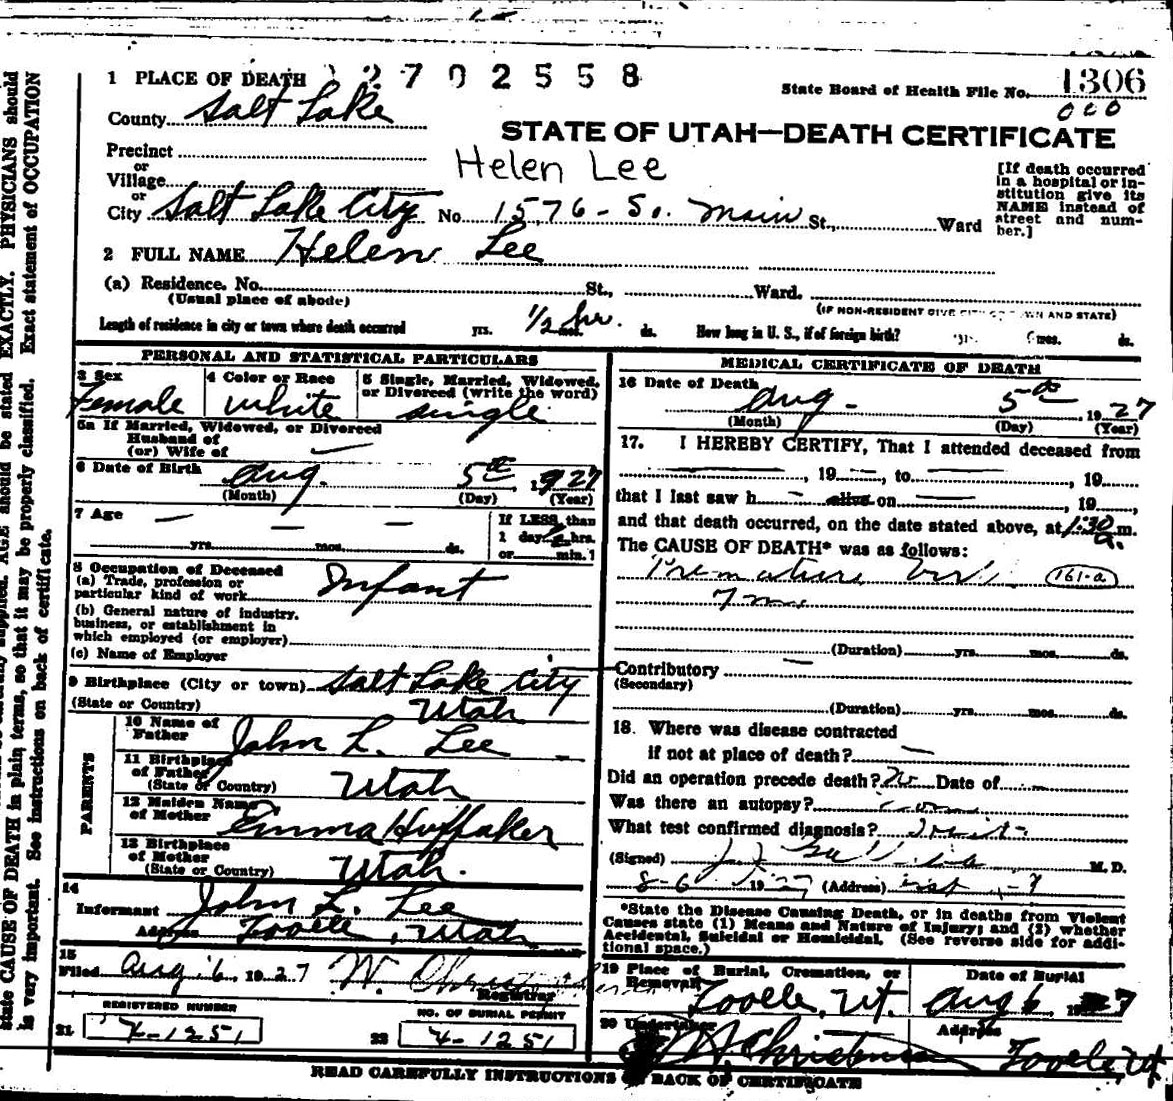 1 PLACE OF DEATH
2702558
State Board of Health File No. 1306
County Salt Lake
STATE OF UTAH—DEATH CERTIFICATE
Precinct
Helen Lee
or
Village
or
City Salt Lake City No. 1576 - So. Main St., Ward
[If death occurred
in a hospital or in-
stitution give its
NAME instead of
street and num-
ber.]
2 FULL NAME Helen Lee
(a) Residence. No. St., Ward.
(Usual place of abode)
(IF NON-RESIDENT GIVE CITY OR TOWN AND STATE)
Length of residence in city or town where death occurred yrs. 1/2 hr. mos. ds. How long in U. S., if of foreign birth? yrs. mos. ds.
PERSONAL AND STATISTICAL PARTICULARS
3 Sex
Female
4 Color or Race
White
5 Single, Married, Widowed,
or Divorced (write the word)
single
5a If Married, Widowed, or Divorced
Husband of
(or) Wife of
6 Date of Birth
Aug. 5th, 1927
(Month) (Day) (Year)
7 Age
yrs. mos. ds.
If LESS than
1 day hrs.
or min.
8 Occupation of Deceased
(a) Trade, profession or
particular kind of work Infant
(b) General nature of industry.
business, or establishment in
which employed (or employer)
(c) Name of Employer
9 Birthplace (City or town) Salt Lake City
(State or Country) Utah
PARENTS
10 Name of
Father John L. Lee
11 Birthplace
of Father
(State or Country) Utah
12 Maiden Name
of Mother Emma Huffaker
13 Birthplace
of Mother
(State or Country) Utah.
14
Informant John L. Lee
Address Tooele, Utah
15
Filed Aug 6, 1927 W. Christensen
Registrar
REGISTERED NUMBER
21 X-1251
NO. OF BURIAL PERMIT
22 X-1251
MEDICAL CERTIFICATE OF DEATH
16 Date of Death
Aug. 5th, 1927
(Month) (Day) (Year)
17. I HEREBY CERTIFY, That I attended deceased from
, 19 , to , 19
that I last saw h alive on , 19 ,
and that death occurred, on the date stated above, at 1:30 a. m.
The CAUSE OF DEATH* was as follows:
Premature birth 161-a
7 mo
(Duration) yrs. mos. ds.
Contributory
(Secondary)
(Duration) yrs. mos. ds.
18. Where was disease contracted
if not at place of death?
Did an operation precede death? No Date of
Was there an autopsy?
What test confirmed diagnosis?
(Signed) M. D.
8-6, 1927 (Address)
*State the Disease Causing Death, or in deaths from Violent
Causes state (1) Means and Nature of Injury; and (2) whether
Accidental, Suicidal or Homicidal. (See reverse side for addi-
tional space.)
19 Place of Burial, Cremation, or
Removal Tooele, Ut.
Date of Burial
Aug 6, 1927
20 Undertaker
Christensen
Address
Tooele Ut
READ CAREFULLY INSTRUCTIONS ON BACK OF CERTIFICATE
state CAUSE OF DEATH in plain terms, so that it may be properly classified. Exact statement of OCCUPATION
is very important. See instructions on back of certificate.
AGE should be stated EXACTLY. PHYSICIANS should